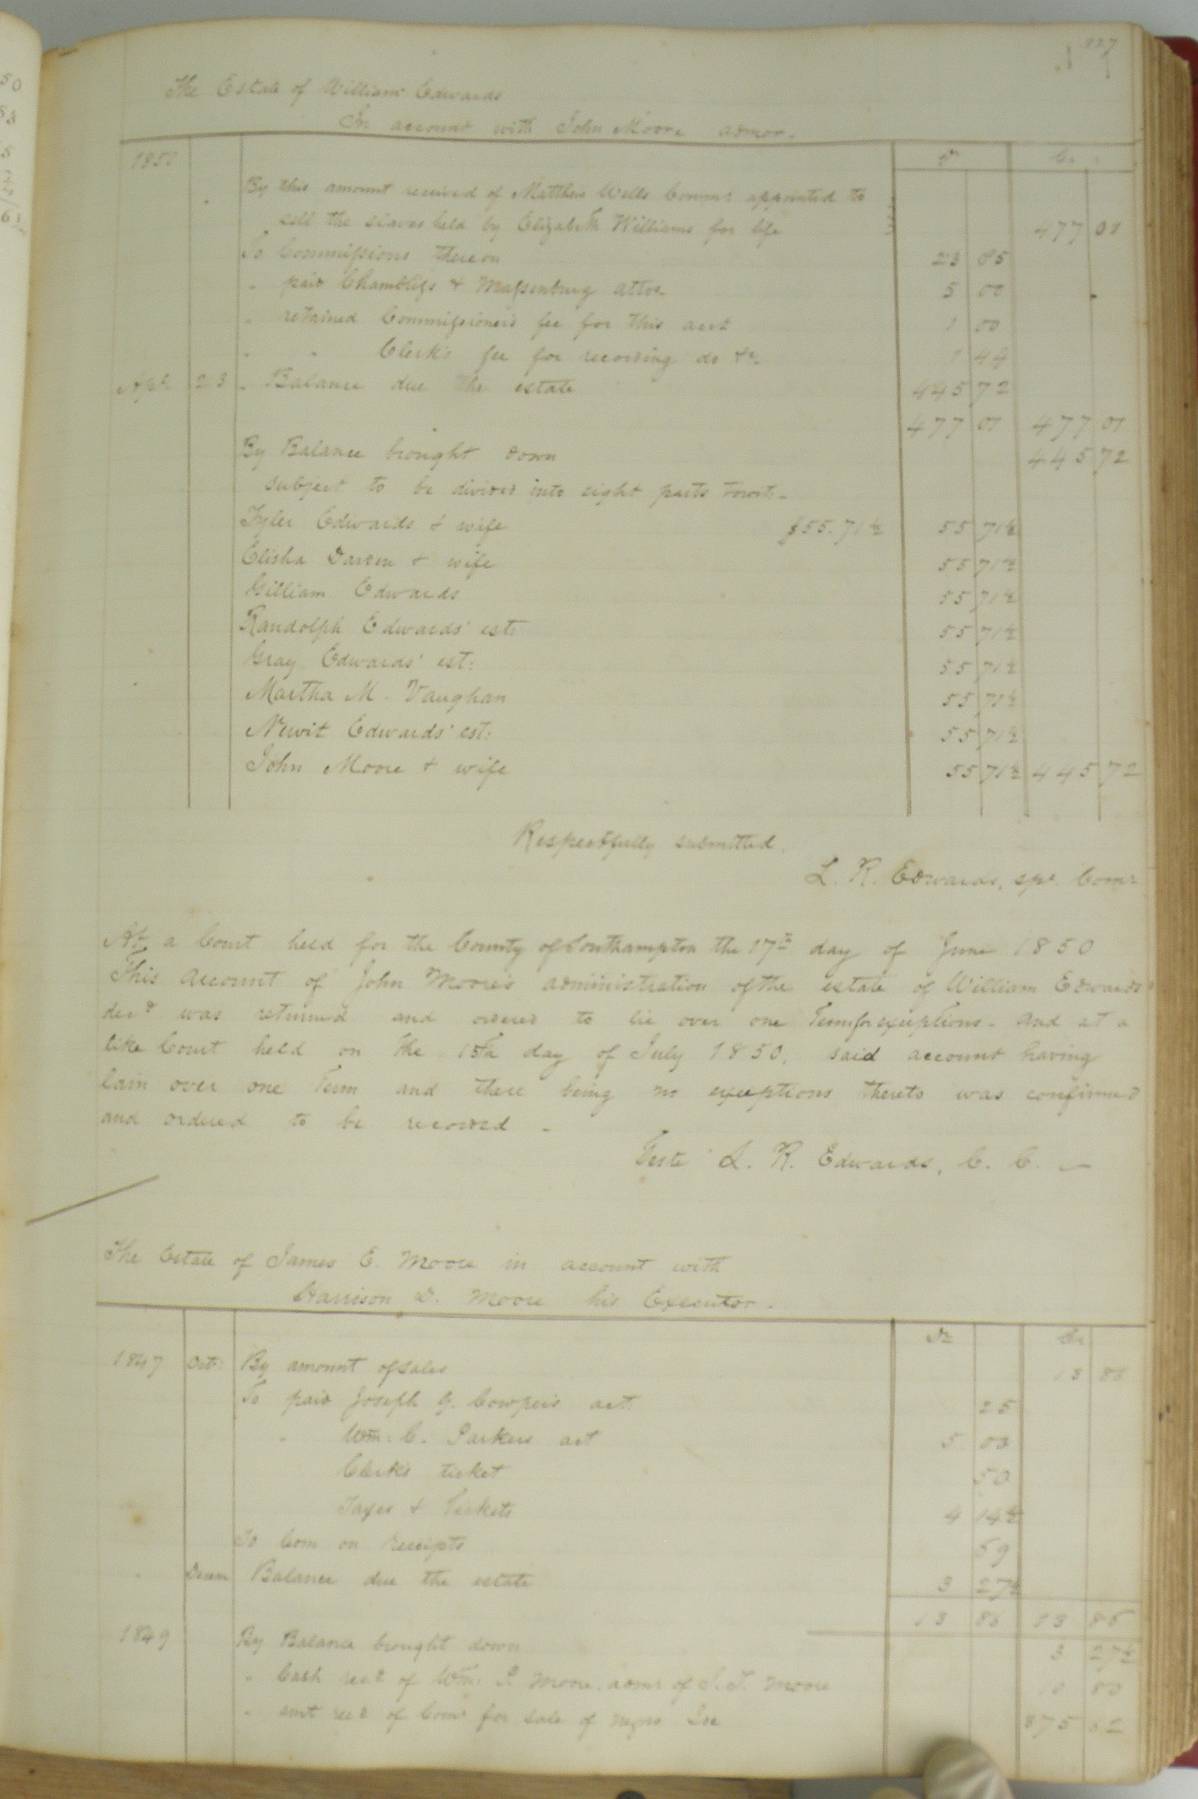 The Estate of William Edwards
In account with John Moore admor.
1850 Dr Cr
By this amount received of Matthew Wells Commr appointed to
sell the slaves held by Elizabeth Williams for life 477 01
To Commissions thereon 23 85
" paid Chambliss & Massenburg attos 5 00
" retained Commissioner's fee for this acct 1 00
" " Clerk's fee for recording do &c 1 44
Apl 23 " Balance due the estate 445 72
477 01 477 01
By Balance brought down 445 72
subject to be divided into eight parts towit-
Tyler Edwards & wife $55.71½ 55 71½
Elisha Darden & wife 55 71½
Gilliam Edwards 55 71½
Randolph Edwards' est: 55 71½
Gray Edwards' est: 55 71½
Martha M. Vaughan 55 71½
Newit Edwards' est: 55 71½
John Moore & wife 55 71½ 445 72
Respectfully submitted
L. R. Edwards, spl. Comr
At a Court held for the County of Southampton the 17th day of June 1850
This account of John Moore's administration of the estate of William Edwards
decd was returned and ordered to lie over one Term for exceptions - and at a
like Court held on the 15th day of July 1850, said account having
lain over one Term and there being no exceptions thereto was confirmed
and ordered to be recorded -
Teste L. R. Edwards, C. C.
The Estate of James E. Moore in account with
Harrison D. Moore his Executor.
Dr Cr
1847 Oct: By amount of sales 13 86
To paid Joseph G. Cowper's act. 25
" Wm. C. Parkers act 5 00
Clerks ticket 50
Taxes & Tickets 4 14½
To Com on receipts 69
" Decem Balance due the estate 3 27½
13 86 13 86
1849 By Balance brought down 3 27½
" Cash recd of Wm. P. Moore, admr of J. T. Moore 10 80
" amt recd of Comr for sale of negro Joe 875 62